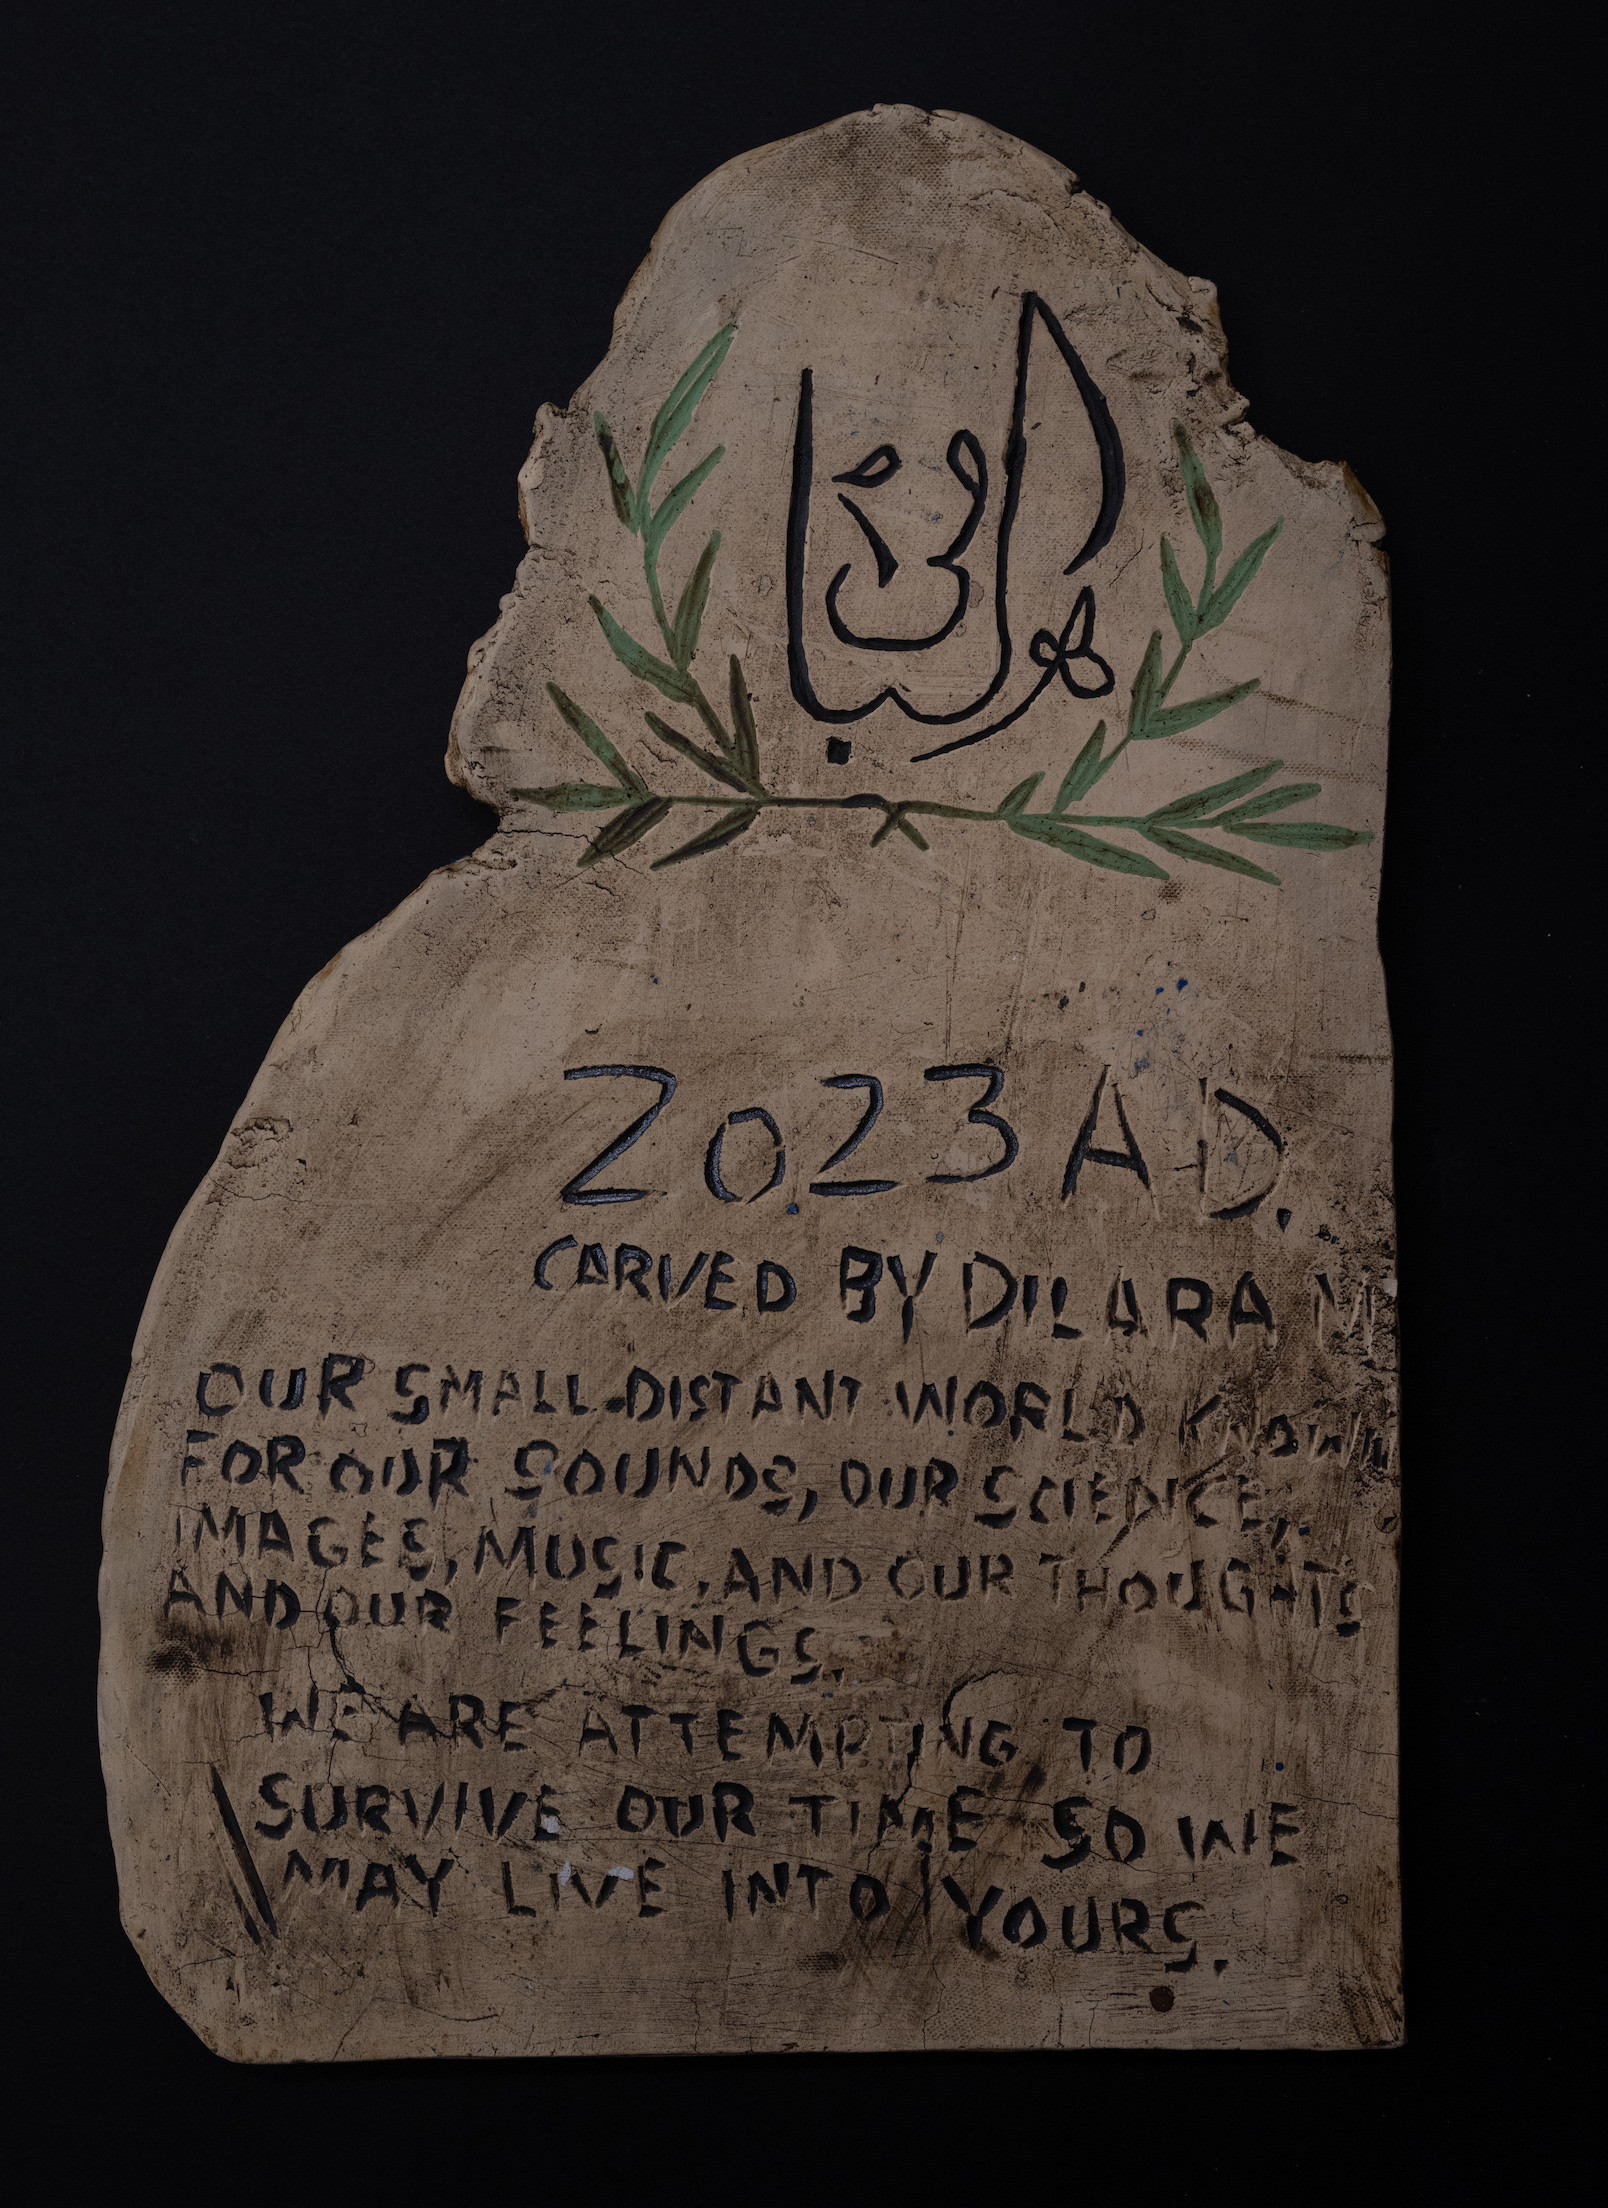 هو الباقي
2023 A.D.
CARVED BY DILARA M
OUR SMALL DISTANT WORLD KNOWN
FOR OUR SOUNDS, OUR SCIENCE,
IMAGES, MUSIC, AND OUR THOUGHTS
AND OUR FEELINGS.
WE ARE ATTEMPTING TO
SURVIVE OUR TIME SO WE
MAY LIVE INTO YOURS.